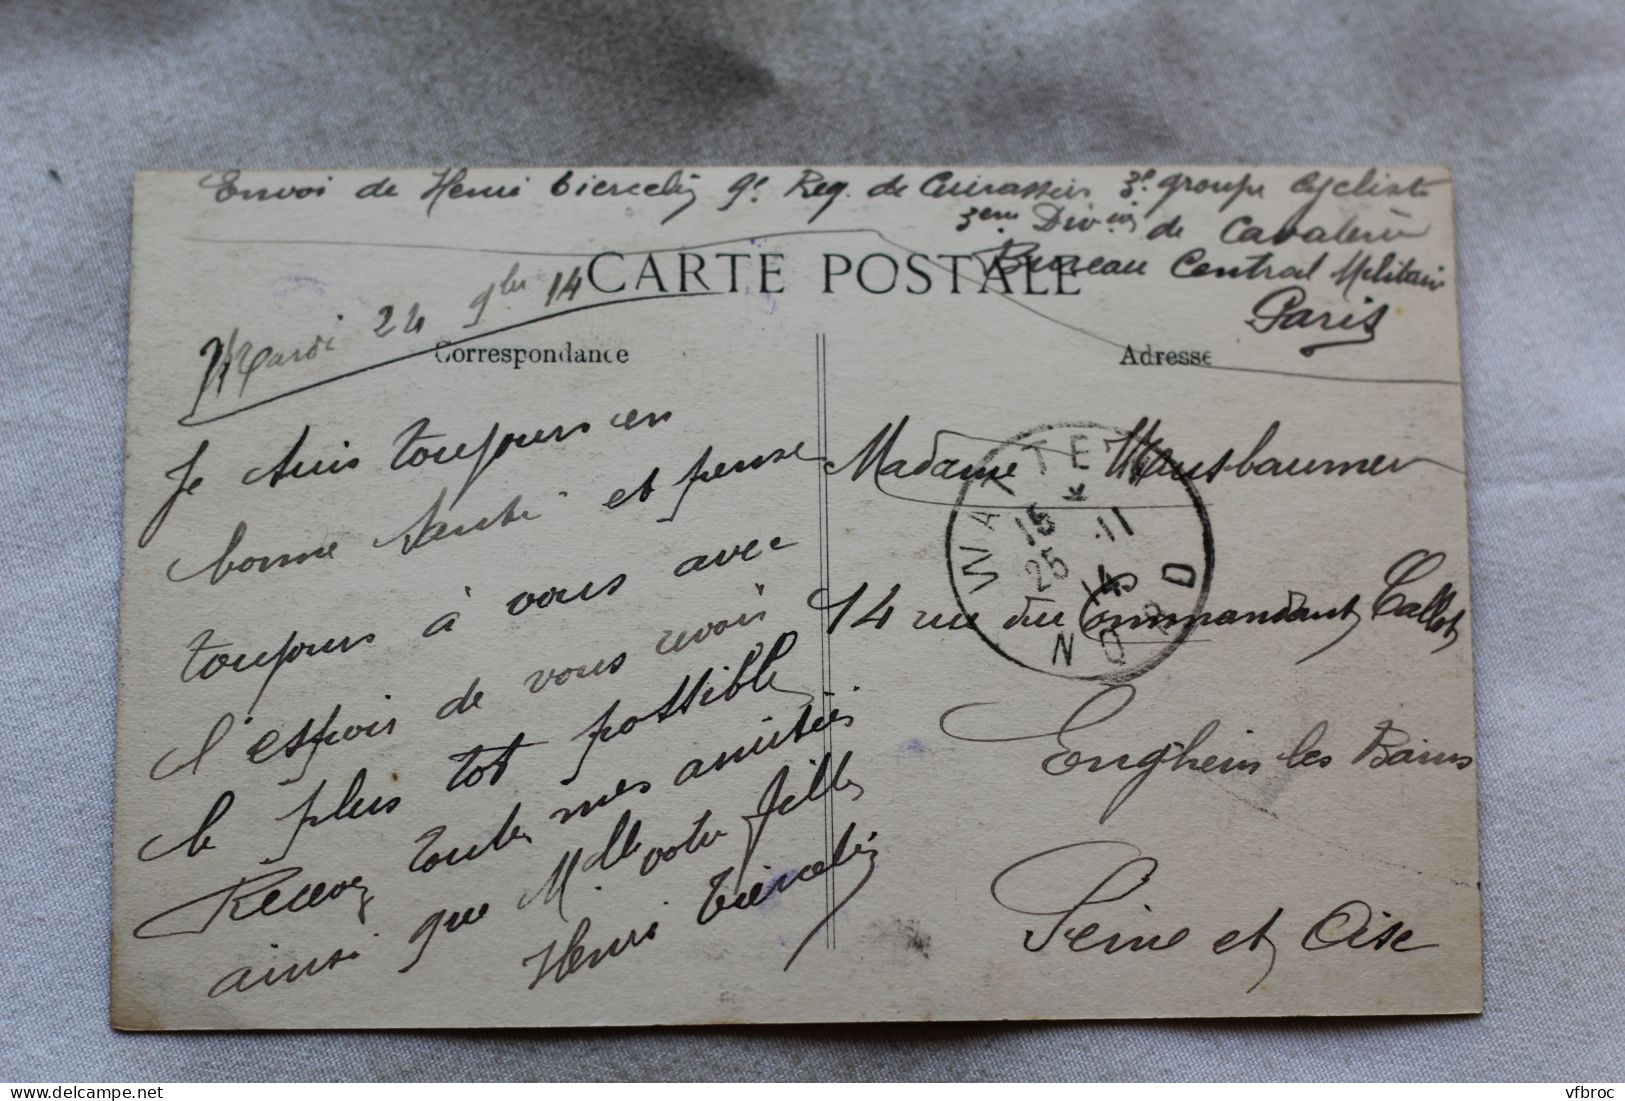 Envoi de Henri Tiercelin 9e Reg. de Cuirassiers 3e groupe Cycliste
3eme Divion de Cavalerie
Bureau Central Militaire
Paris
CARTE POSTALE
Correspondance
Adresse
Mardi 24 9bre 14
Je suis toujours en
bonne santé et pense
toujours à vous avec
l'espoir de vous revoir
le plus tot possible
Recevez toutes mes amitiés
ainsi que Mlle votre fille
Henri Tiercelin
Madame Hausbaumer
14 rue du Commandant Callot
Enghein les Bains
Seine et Oise
WATTEN
15 * 11
25 14
NORD
vfbroc